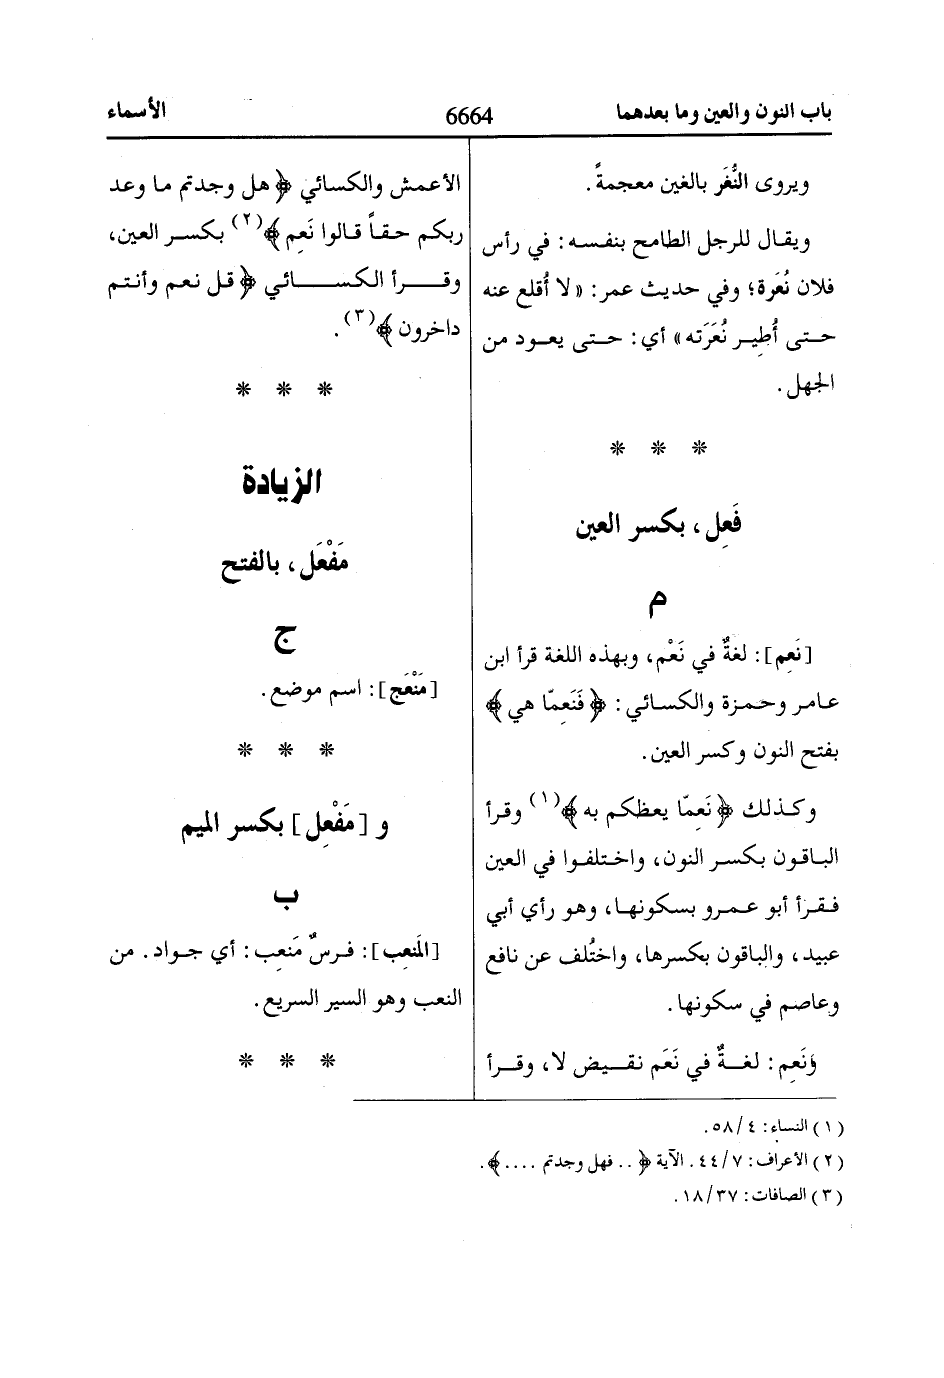 باب النون والعين وما بعدهما
6664
الأسماء
ويروى النُّغَر بالغين معجمةً.
ويقال للرجل الطامح بنفسه: في رأس
فلان نُعَرة؛ وفي حديث عمر: «لا أُقلع عنه
حتى أُطِير نُعَرَته» أي: حتى يعود من
الجهل.
* * *
فَعِل، بكسر العين
م
[نَعِم]: لغةٌ في نَعْم، وبهذه اللغة قرأ ابن
عامر وحمزة والكسائي: ﴿فَنَعِمّا هي﴾
بفتح النون وكسر العين.
وكذلك ﴿نَعِمّا يعظكم به﴾(١) وقرأ
الباقون بكسر النون، واختلفوا في العين
فقرأ أبو عمرو بسكونها، وهو رأي أبي
عبيد، والباقون بكسرها، واختُلف عن نافع
وعاصم في سكونها.
وَنَعِم: لغةٌ في نَعَم نقيض لا، وقرأ
الأعمش والكسائي ﴿هل وجدتم ما وعد
ربكم حقاً قالوا نَعِم﴾(٢) بكسر العين،
وقرأ الكسائي ﴿قل نعم وأنتم
داخرون﴾(٣).
* * *
الزيادة
مَفْعَل، بالفتح
ج
[مَنْعَج]: اسم موضع.
* * *
و [مَفْعِل] بكسر الميم
ب
[المَنعِب]: فرسٌ مَنعِب: أي جواد. من
النعب وهو السير السريع.
* * *
(١) النساء: ٥٨/٤.
(٢) الأعراف: ٤٤/٧. الآية ﴿.. فهل وجدتم ....﴾.
(٣) الصافات: ١٨/٣٧.